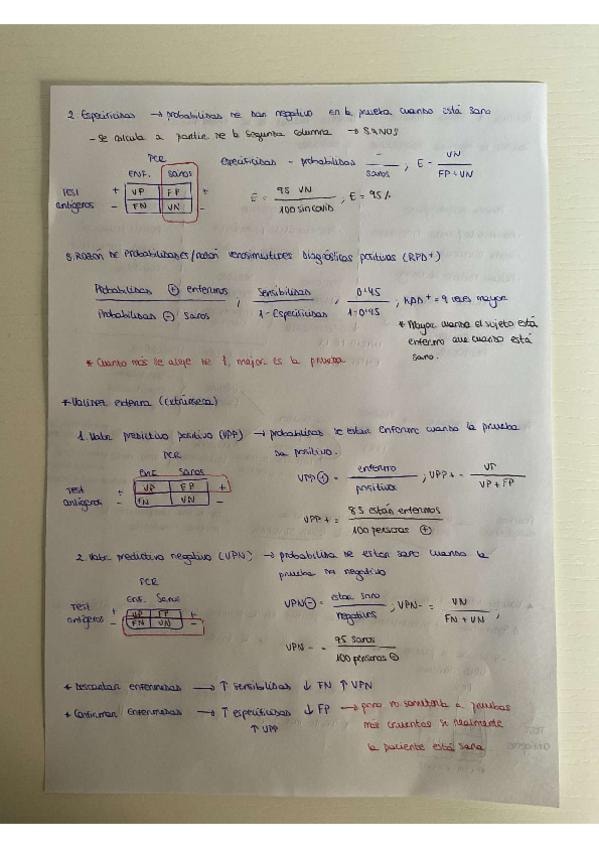 2. Especificidad → probabilidad de dar negativo en la prueba cuando está sano
- se calcula a partir de la segunda columna → SANOS
PCR
ENF. Sanos
Test antígeros
+ VP FP +
- FN VN -
especificidad - probabilidad - / sanos ; E - VN / FP+VN
E = 95 VN / 100 sin covid , E = 95%
3. Razón de Probabilidades/razón verosimilitudes diagnósticas positivas (RPD+)
Probabilidad ⊕ enfermos / Probabilidad ⊖ sanos ; Sensibilidad / 1 - Especificidad ; 0'45 / 1-0'95 ; RPD+ = 9 veces mayor
* Mayor cuando el sujeto está
enfermo que cuando está
sano.
* Cuanto más se aleje de 1, mejor es la prueba
* Validez externa (extrínseca)
1. Valor predictivo positivo (VPP) → probabilidad de estar enfermo cuando la prueba
da positivo.
PCR
ENF. Sanos
Test antígeros
+ VP FP +
- FN VN -
VPP⊕ = enfermo / positivos ; VPP+ - VP / VP + FP
VPP+ = 85 están enfermos / 100 personas ⊕
2. Valor predictivo negativo (VPN) → probabilidad de estar sano cuando la
prueba da negativo
PCR
Enf. Sanos
Test antígeros
+ VP FP +
- FN VN -
VPN⊖ = estar sano / negativos ; VPN- = VN / FN + VN ,
VPN- = 95 sanos / 100 personas ⊖
* Descartar enfermedades → ↑ sensibilidad ↓ FN ↑ VPN
* Confirmar enfermedades → ↑ especificidad ↓ FP → para no someterla a pruebas
↑ VPP
más cruentas si realmente
la paciente está sana